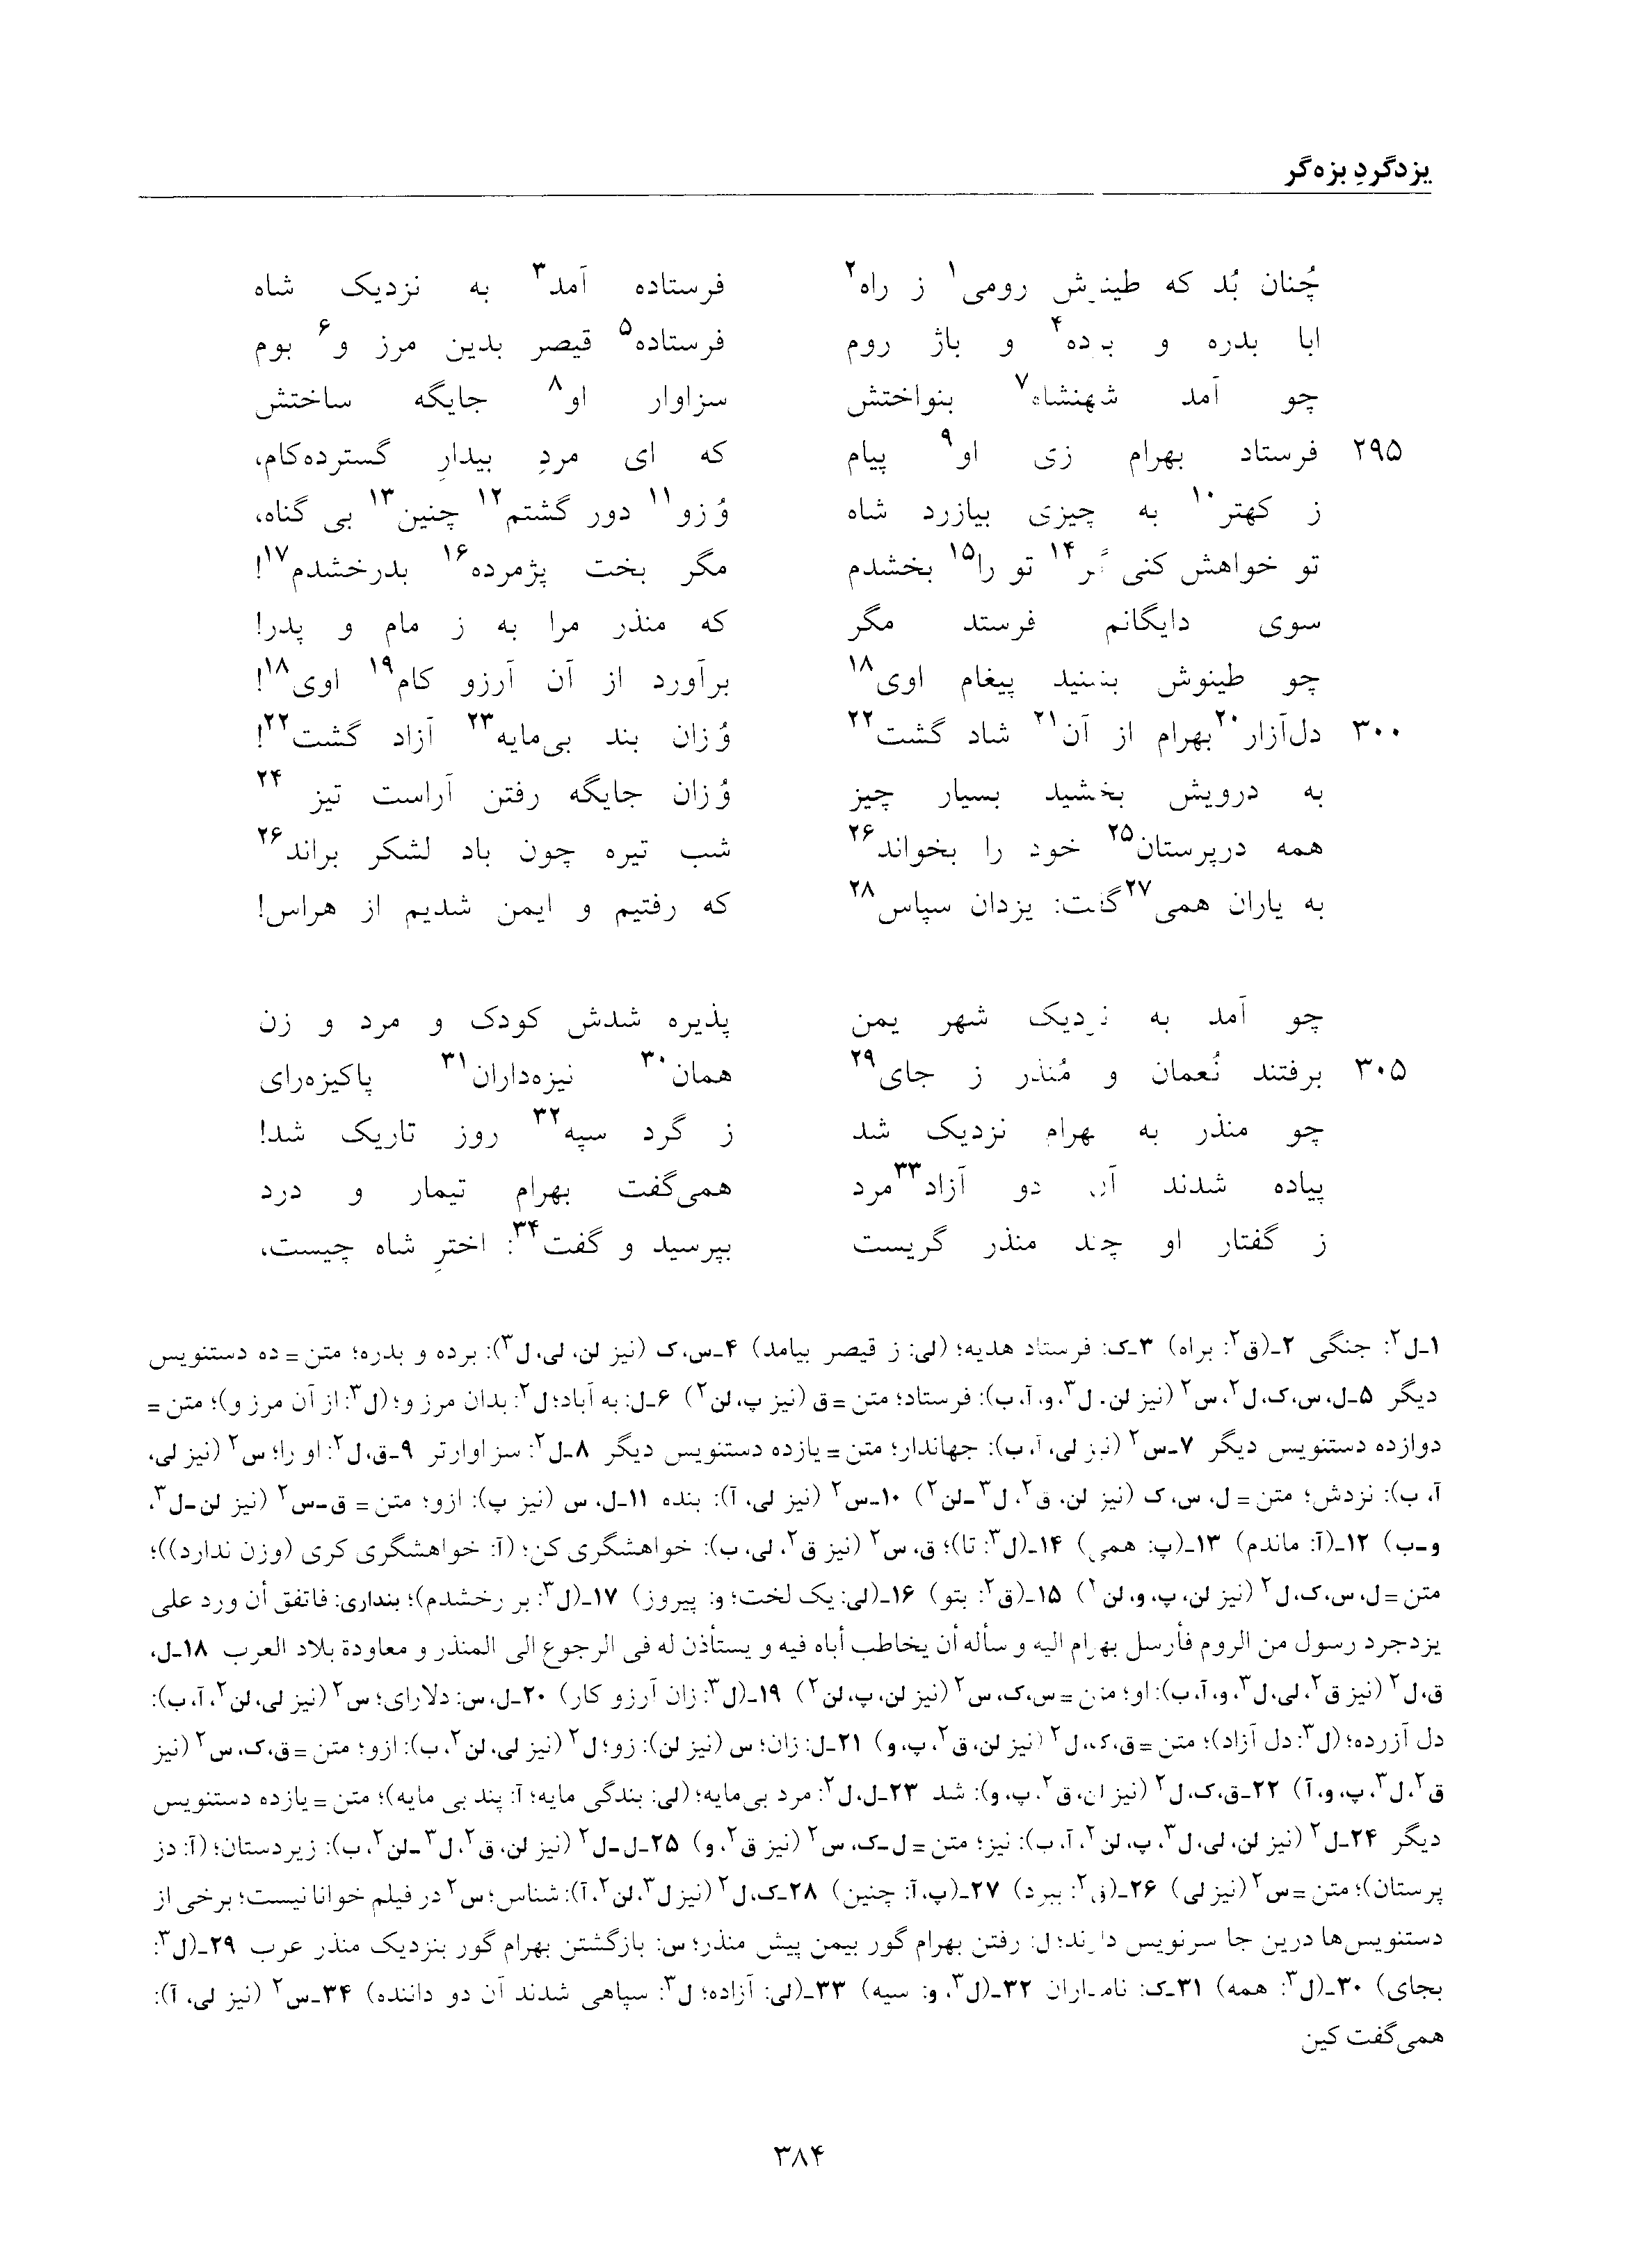 یزدگردِ بزه‌گر
چُنان بُد که طینوش رومی۱ ز راه۲ فرستاده آمد۳ به نزدیک شاه
ابا بدره و برده۴ و باژ روم فرستاده۵ قیصر بدین مرز و۶ بوم
چو آمد شهنشاه۷ بنواختش سزاوار او۸ جایگه ساختش
۲۹۵ فرستاد بهرام زی او۹ پیام که ای مردِ بیدارِ گسترده‌کام،
ز کهتر۱۰ به چیزی بیازرد شاه وُزو۱۱ دور گشتم۱۲ چنین۱۳ بی گناه،
تو خواهش کنی گر۱۴ تو را۱۵ بخشدم مگر بخت پژمرده۱۶ بدرخشدم۱۷!
سوی دایگانم فرستد مگر که منذر مرا به ز مام و پدر!
چو طینوش بشنید پیغام اوی۱۸ برآورد از آن آرزو کام۱۹ اوی۱۸!
۳۰۰ دل‌آزار۲۰ بهرام از آن۲۱ شاد گشت۲۲ وُزان بند بی‌مایه۲۳ آزاد گشت۲۲!
به درویش بخشید بسیار چیز وُزان جایگه رفتن آراست تیز ۲۴
همه درپرستان۲۵ خود را بخواند۲۶ شب تیره چون باد لشکر براند۲۶
به یاران همی۲۷ گفت: یزدان سپاس۲۸ که رفتیم و ایمن شدیم از هراس!
چو آمد به نزدیک شهر یمن پذیره شدش کودک و مرد و زن
۳۰۵ برفتند نُعمان و مُنذر ز جای۲۹ همان۳۰ نیزه‌داران۳۱ پاکیزه‌رای
چو منذر به بهرام نزدیک شد ز گرد سپه۳۲ روز تاریک شد!
پیاده شدند آن دو آزاد۳۳ مرد همی‌گفت بهرام تیمار و درد
ز گفتار او چند منذر گریست بپرسید و گفت۳۴: اخترِ شاه چیست،
۱ـ ل۲: جنگی ۲ـ (ق۲: براه) ۳ـ ک: فرستاد هدیه؛ (لی: ز قیصر بیامد) ۴ـ س، ک (نیز لن، لی، ل۳): برده و بدره؛ متن = ده دستنویس
دیگر ۵ـ ل، س، ک، ل۲، س۲ (نیز لن، ل۳، و، آ، ب): فرستاد؛ متن = ق (نیز پ، لن۲) ۶ـ ل: به آباد؛ ل۲: بدان مرز و؛ (ل۳: از آن مرز و)؛ متن =
دوازده دستنویس دیگر ۷ـ س۲ (نیز لی، آ، ب): جهاندار؛ متن = یازده دستنویس دیگر ۸ـ ل۲: سزاوارتر ۹ـ ق، ل۲: او را؛ س۲ (نیز لی،
آ، ب): نزدش؛ متن = ل، س، ک (نیز لن، ق۲، ل۳ـ لن۲) ۱۰ـ س۲ (نیز لی، آ): بنده ۱۱ـ ل، س (نیز پ): ازو؛ متن = ق ـ س۲ (نیز لن ـ ل۳،
و ـ ب) ۱۲ـ (آ: ماندم) ۱۳ـ (پ: همی) ۱۴ـ (ل۳: تا)؛ ق، س۲ (نیز ق۲، لی، ب): خواهشگری کن؛ (آ: خواهشگری کری (وزن ندارد))؛
متن = ل، س، ک، ل۲ (نیز لن، پ، و، لن۲) ۱۵ـ (ق۲: بتو) ۱۶ـ (لی: یک لخت؛ و: پیروز) ۱۷ـ (ل۳: بر رخشدم)؛ بنداری: فاتفق أن ورد علی
یزدجرد رسول من الروم فأرسل بهرام الیه و سأله أن یخاطب أباه فیه و یستأذن له فی الرجوع الی المنذر و معاودة بلاد العرب ۱۸ـ ل،
ق، ل۲ (نیز ق۲، لی، ل۳، و، آ، ب): او؛ متن = س، ک، س۲ (نیز لن، پ، لن۲) ۱۹ـ (ل۳: زان آرزو کار) ۲۰ـ ل، س: دلارای؛ س۲ (نیز لی، لن۲، آ، ب):
دل آزرده؛ (ل۳: دل آزاد)؛ متن = ق، ک، ل۲ (نیز لن، ق۲، پ، و) ۲۱ـ ل: زان؛ س (نیز لن): زو؛ ل۲ (نیز لی، لن۲، ب): ازو؛ متن = ق، ک، س۲ (نیز
ق۲، ل۳، پ، و، آ) ۲۲ـ ق، ک، ل۲ (نیز لن، ق۲، پ، و): شد ۲۳ـ ل، ل۲: مرد بی‌مایه؛ (لی: بندگی مایه؛ آ: پند بی مایه)؛ متن = یازده دستنویس
دیگر ۲۴ـ ل۲ (نیز لن، لی، ل۳، پ، لن۲، آ، ب): نیز؛ متن = ل ـ ک، س۲ (نیز ق۲، و) ۲۵ـ ل ـ ل۲ (نیز لن، ق۲، ل۳ـ لن۲، ب): زیردستان؛ (آ: دز
پرستان)؛ متن = س۲ (نیز لی) ۲۶ـ (ق۲: ببرد) ۲۷ـ (پ، آ: چنین) ۲۸ـ ک، ل۲ (نیز ل۳، لن۲، آ): شناس؛ س۲ در فیلم خوانا نیست؛ برخی از
دستنویس‌ها درین جا سرنویس دارند؛ ل: رفتن بهرام گور بیمن پیش منذر؛ س: بازگشتن بهرام گور بنزدیک منذر عرب ۲۹ـ (ل۳:
بجای) ۳۰ـ (ل۳: همه) ۳۱ـ ک: نامداران ۳۲ـ (ل۳، و: سیه) ۳۳ـ (لی: آزاده؛ ل۳: سپاهی شدند آن دو داننده) ۳۴ـ س۲ (نیز لی، آ):
همی‌گفت کین
۳۸۴